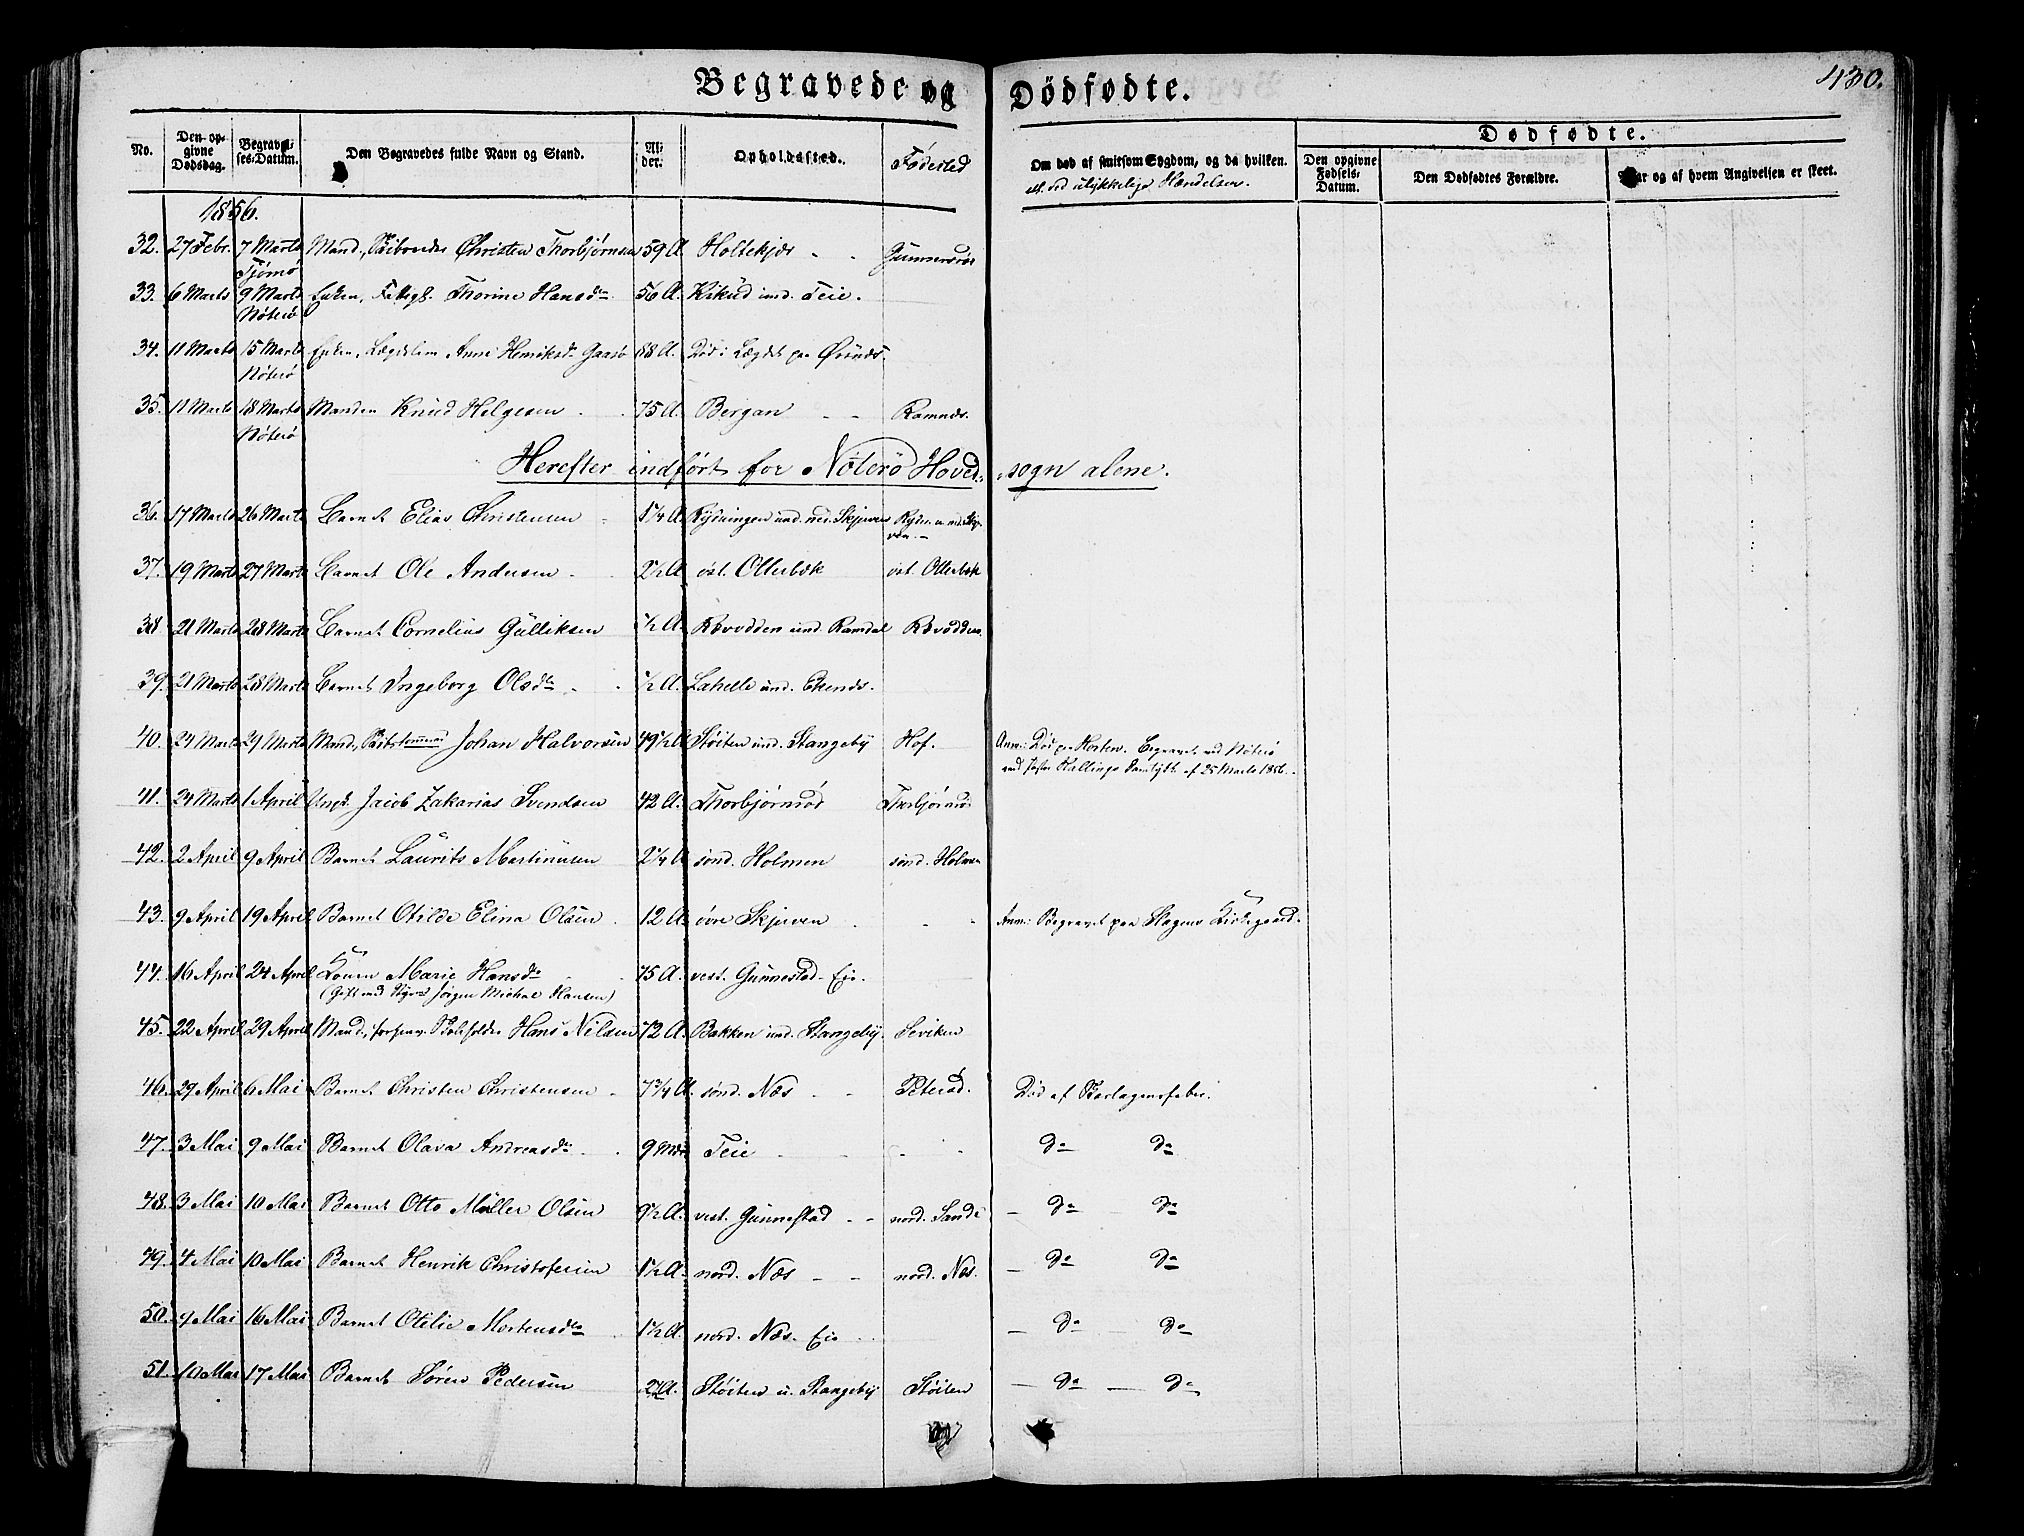 Begravede og Dödfødte.
430.
No.
Den opgivne Dødsdag.
Begravelses-Datum.
Den Begravedes fulde Navn og Stand.
Alder.
Opholdssted.
Fødested
Om død af smitsom Sygdom, og da hvilken.
el. ved ulykkelige Hændelser.
Dødfødte.
Den opgivne Fødsels-Datum.
Den Dødfødtes Forældre.
og af hvem Angivelsen er skeet.
1856.
32. 27 Febr. 7 Marts Tjømø Mand, Christen Thorbjørnsen 59 A. Holtekjær
33. 6 Marts 9 Marts Nøterø Enken, Thorine Hansdtr 56 A. und. Teie.
34. 11 Marts 15 Marts Nøterø Enken, Lægdslem Anne Henriksdr Gaasø 88 A. Død i Lægdet paa
35. 11 Marts 18 Marts Nøterø Manden Knud Helgesen 75 A. Bergan Ramnæs.
Herefter indført for Nøterø Hoved-sogn alene.
36. 17 Marts 26 Marts Barnet Elias Christensen 1 1/4 A. Rydningen und. ned. Skjerven
37. 19 Marts 27 Marts Barnet Ole Andersen 2 1/2 A. øst. Ollebæk øst. Ollebæk
38. 21 Marts 28 Marts Barnet Cornelius Gulliksen 1/2 A. und. Ramdal
39. 21 Marts 28 Marts Barnet Ingeborg Olsdtr 1/2 A. Lahelle und. Ekenæs.
40. 24 Marts 29 Marts Mand, Johan Halvorsen 49 1/2 A. Støiten und. Stangeby Hof. Anm: Død paa Horten. Begravet ved Nøterø
ved Pastor af 25 Marts 1856.
41. 24 Marts 1 April Ungk. Jacob Zakarias Svendsen 42 A. Thorbjørnrød Thorbjørnrød
42. 2 April 9 April Barnet Laurits Martinusen 2 1/4 A. sønd. Holmen sønd. Holmen
43. 9 April 19 April Barnet Otilde Elina Olsen 12 A. øvre Skjerven Anm: Begravet paa Slagens Kirkegaard.
44. 16 April 24 April Konen Marie Hansdtr 75 A. vest. Gunnestad-Eie.
(Gift med Jørgen Michal Hansen)
45. 22 April 29 April Mand, Hans Nilsen 72 A. Bakken und. Stangeby. Seviken
46. 29 April 6 Mai Barnet Christen Christensen 7 3/4 A. sønd. Næs Død af Skarlagensfeber.
47. 3 Mai 9 Mai Barnet Olava Andreasdr 9 Mdr Teie do do
48. 3 Mai 10 Mai Barnet Otto Müller Olsen 9 1/2 A. vest. Gunnestad nord. Sande do do
49. 4 Mai 10 Mai Barnet Henrik Christofersen 1 1/2 A. nord. Næs nord. Næs. do do
50. 9 Mai 16 Mai Barnet Otilie Mortensdtr 1 1/2 A. nord. Næs-Eie do do
51. 10 Mai 17 Mai Barnet Søren Pedersen Støiten u. Stangeby Støiten do do